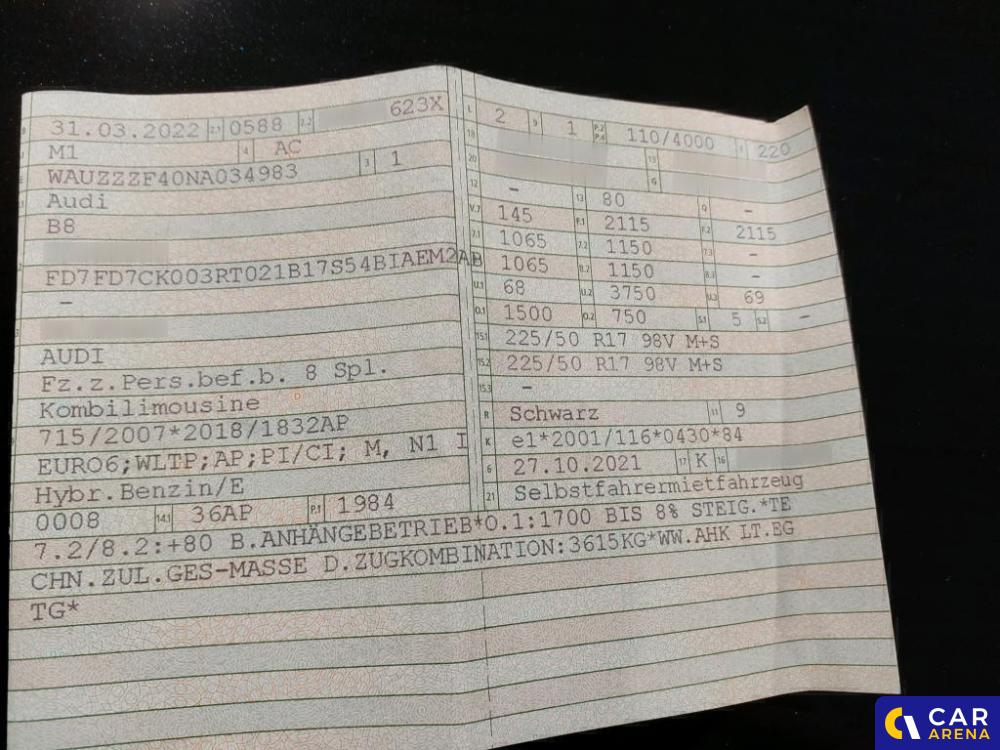 B 31.03.2022 2.1 0588 2.2 623X
J M1 4 AC
E WAUZZZF40NA034983 3 1
Audi
B8
FD7FD7CK003RT021B17S54BIAEM2AB
–
AUDI
Fz.z.Pers.bef.b. 8 Spl.
Kombilimousine
715/2007*2018/1832AP
EURO6;WLTP;AP;PI/CI; M, N1 I
Hybr.Benzin/E
0008 14.1 36AP P.1 1984
L 2 9 1 P.2 P.4 110/4000 T 220
18
20 G
12 – 13 80 Q –
V.7 145 F.1 2115 F.2 2115
7.1 1065 7.2 1150 7.3 –
1065 8.2 1150 8.3 –
U.1 68 U.2 3750 U.3 69
O.1 1500 O.2 750 S.1 5 S.2 –
15.1 225/50 R17 98V M+S
15.2 225/50 R17 98V M+S
15.3 –
R Schwarz 11 9
K e1*2001/116*0430*84
6 27.10.2021 17 K 16
21 Selbstfahrermietfahrzeug
7.2/8.2:+80 B.ANHÄNGEBETRIEB*O.1:1700 BIS 8% STEIG.*TE
CHN.ZUL.GES-MASSE D.ZUGKOMBINATION:3615KG*WW.AHK LT.EG
TG*
CAR
ARENA